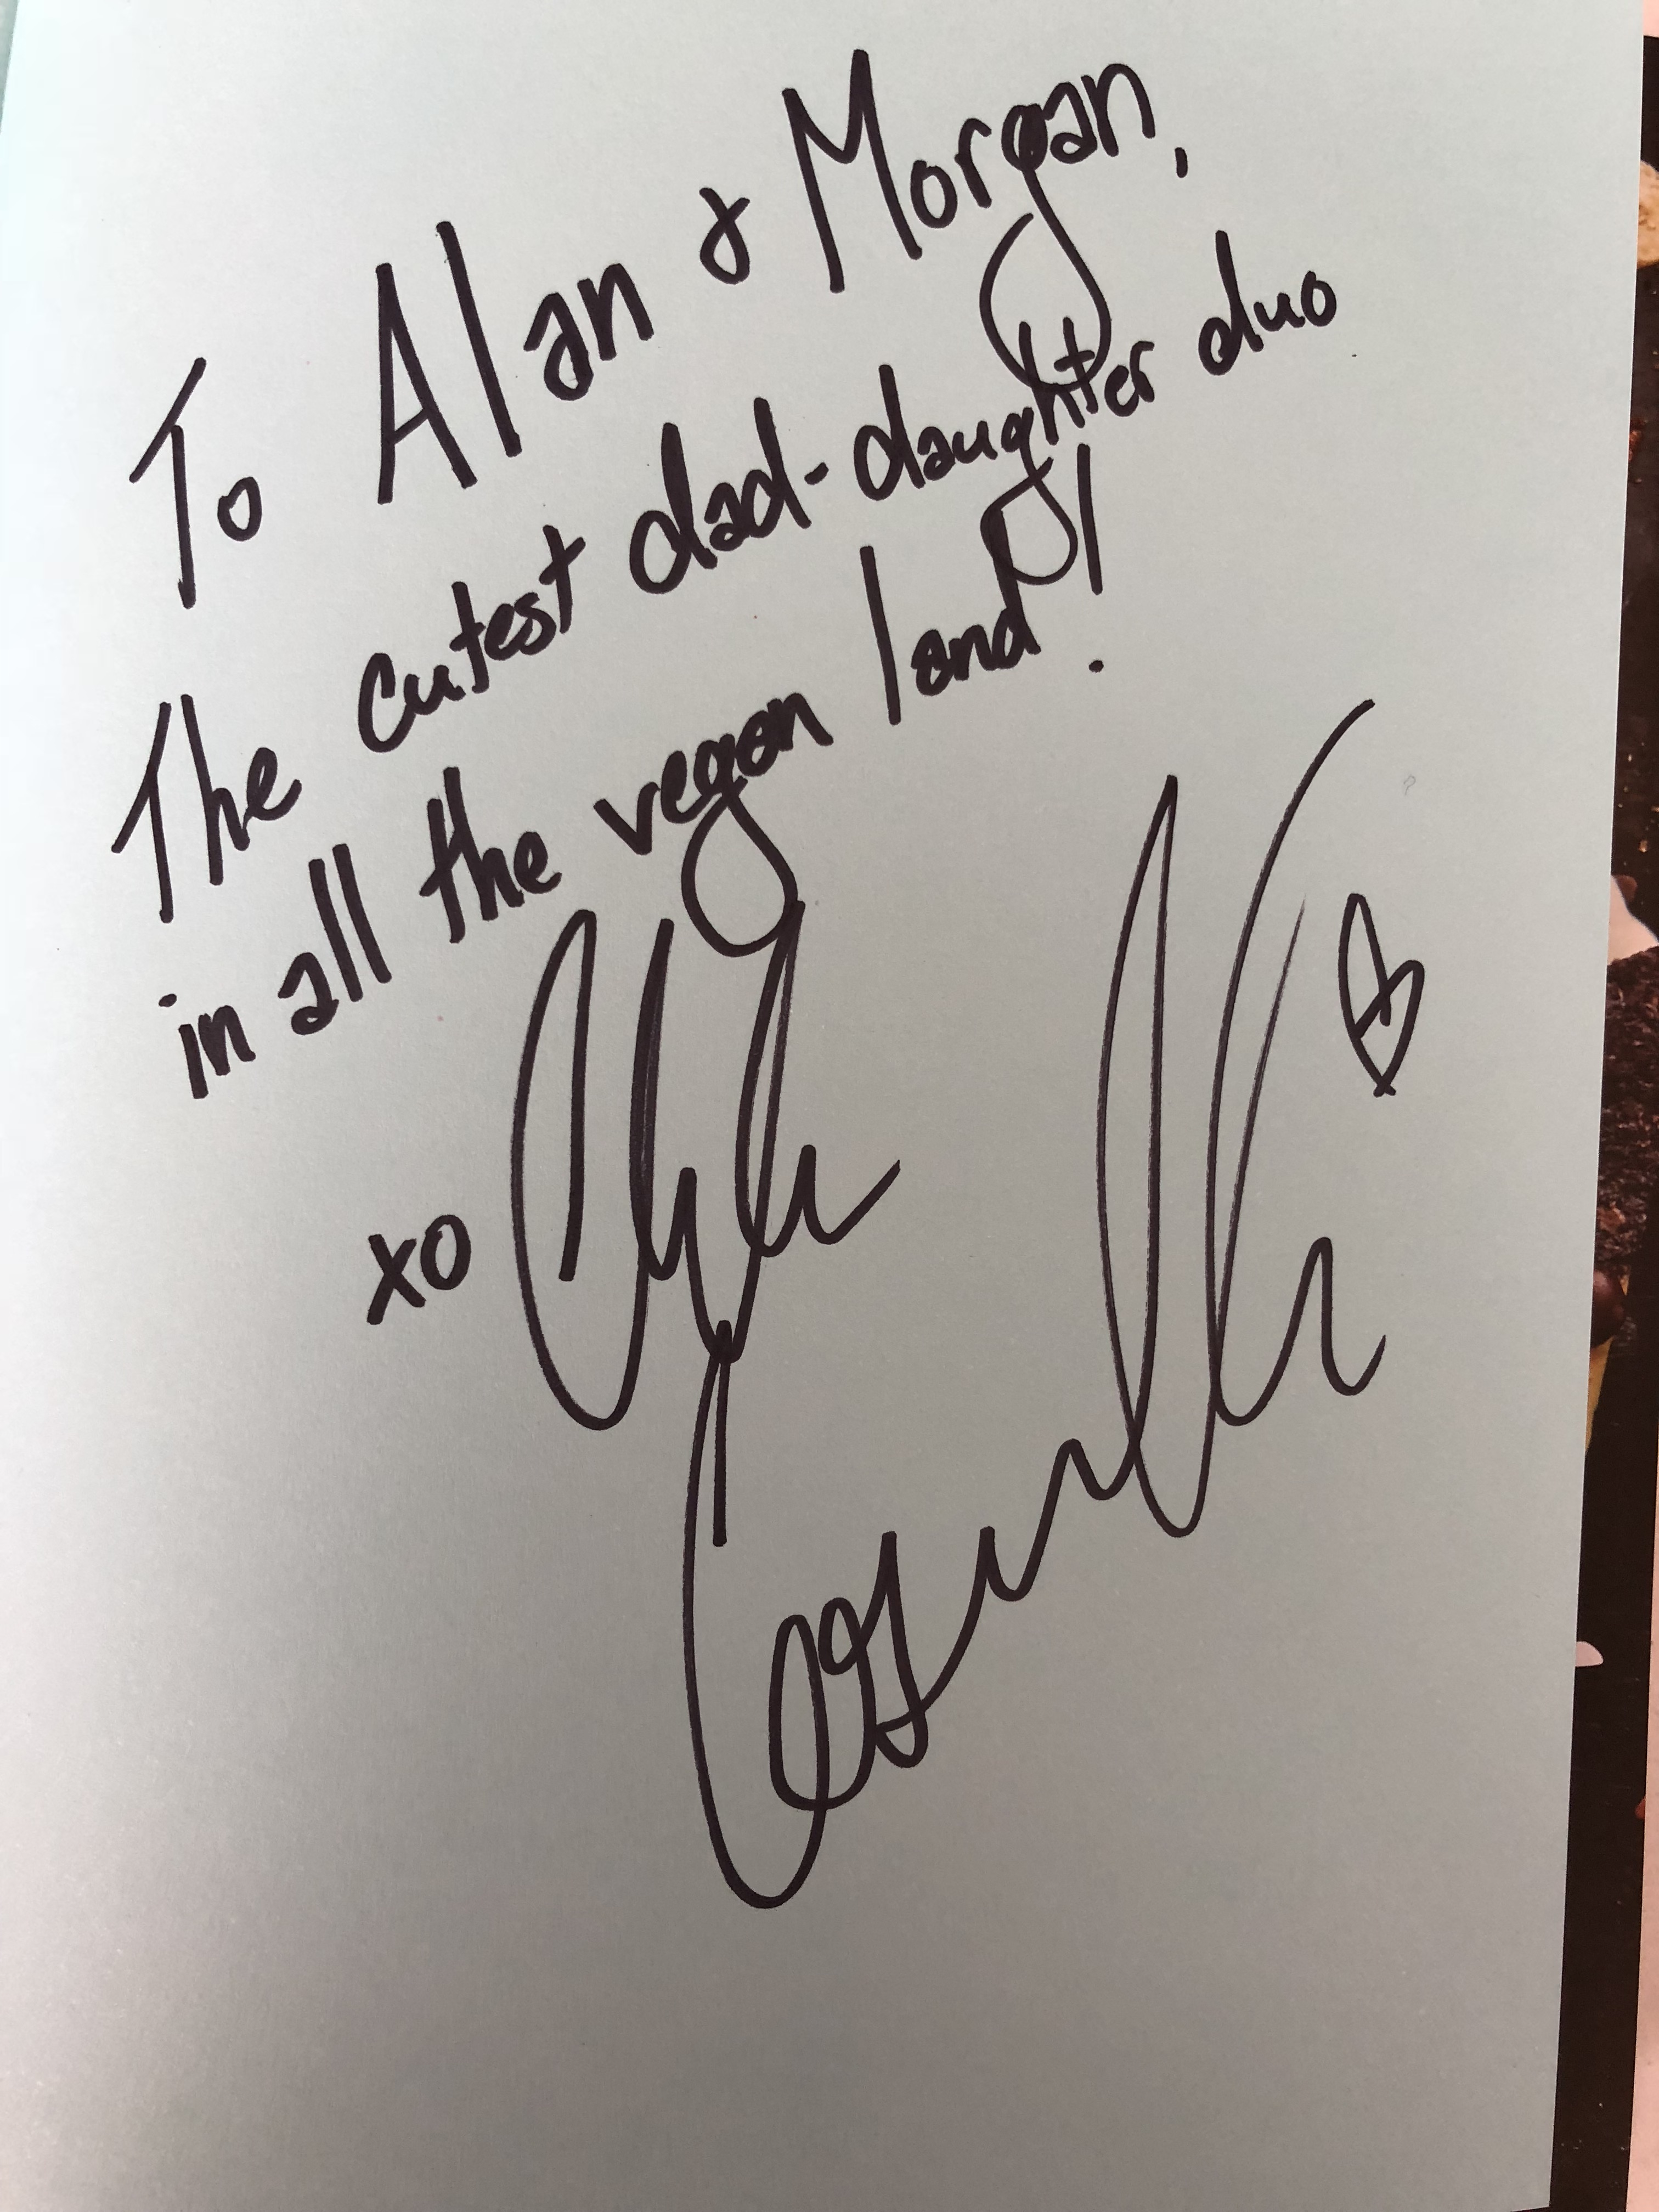 To Alan & Morgan,
The cutest dad-daughter duo
in all the vegan land!
xo Chloe
Coscarelli